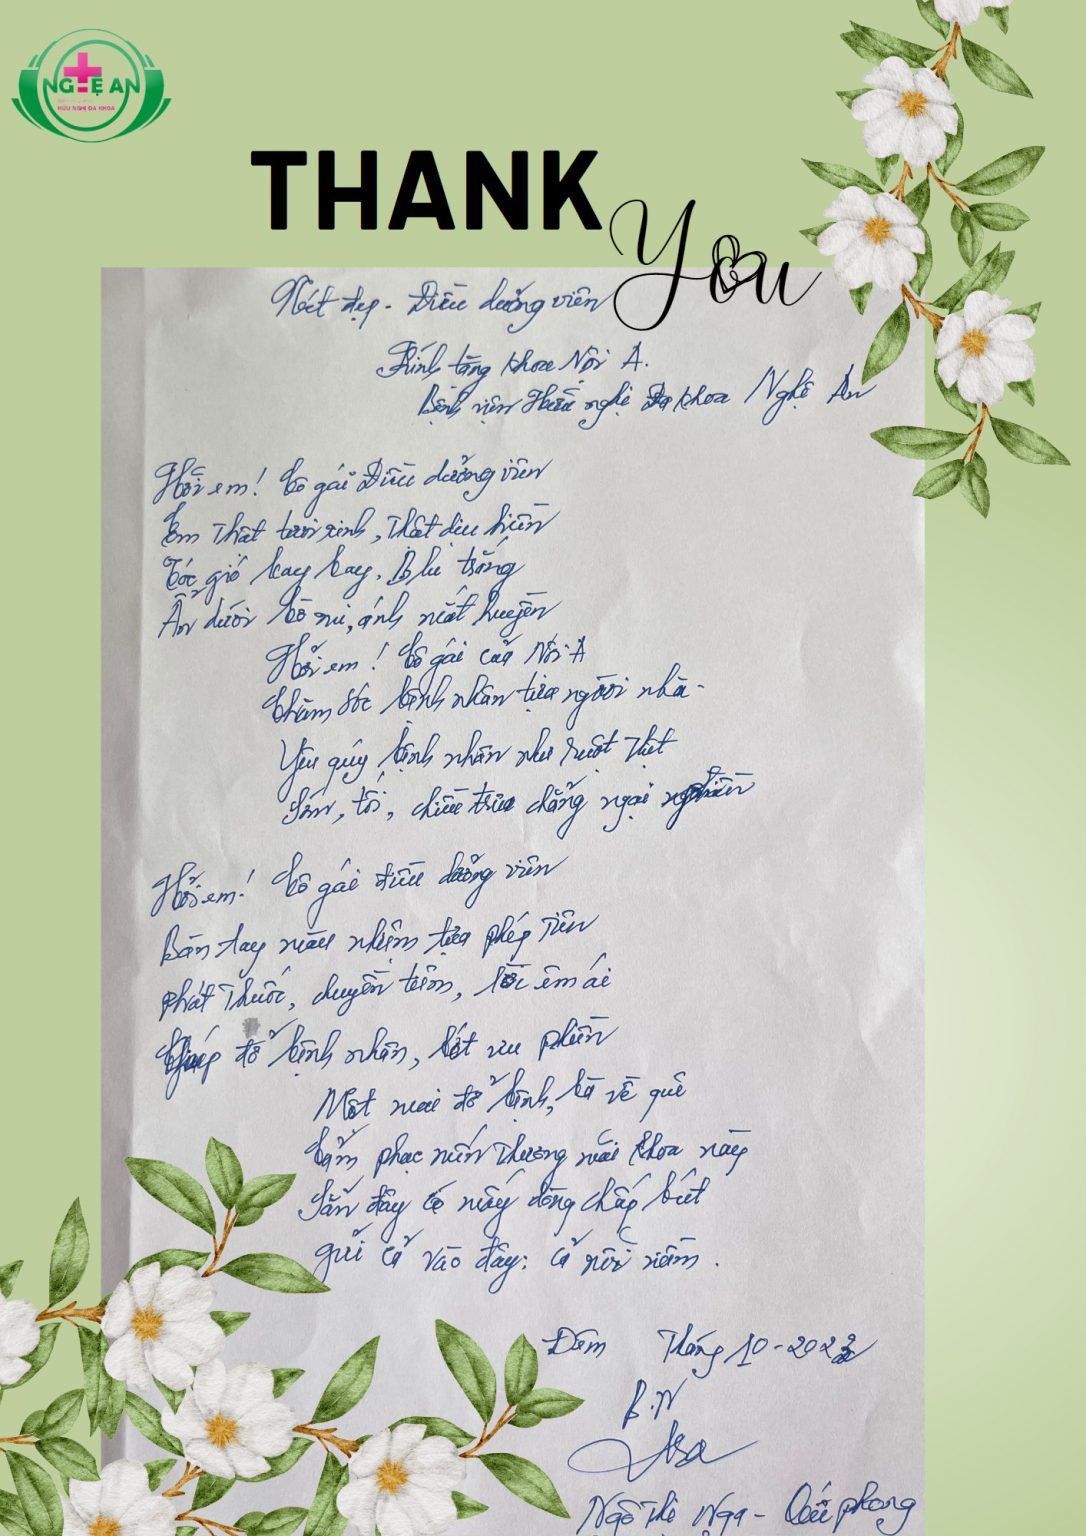 NGHỆ AN
HỮU NGHỊ ĐA KHOA
THANK
You
Nét đẹp - Điều dưỡng viên
Kính tặng khoa Nội A.
Bệnh viện Hữu nghị Đa khoa Nghệ An
Hỡi em! Cô gái Điều dưỡng viên
Em thật tươi xinh, thật dịu hiền
Tóc gió bay bay. Blu trắng
Ẩn dưới bờ mi, ánh mắt huyền
Hỡi em! Cô gái của Nội A
Chăm sóc bệnh nhân tựa người nhà -
Yêu quý bệnh nhân như ruột thịt
Sớm, tối, chiều trưa chẳng ngại
Hỡi em! Cô gái điều dưỡng viên
Bàn tay màu nhiệm tựa phép tiên
phát thuốc, chuyền tiêm, lời êm ái
Giúp đỡ bệnh nhân, bớt ưu phiền
Một mai đỡ bệnh, bà về quê
Cảm phục mến thương mãi khoa này
Sẵn đây có mấy dòng chấp bút
gửi cả vào đây: cả nỗi niềm.
Đêm Tháng 10-2022
B.N
Nga
Ngô Thị Nga - Quế phong